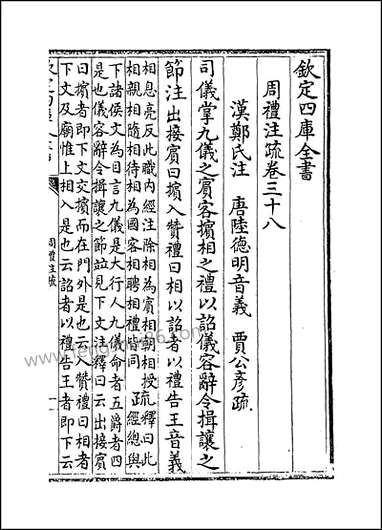 欽定四庫全書
周禮注疏卷三十八
漢鄭氏注 唐陸德明音義 賈公彥疏
司儀掌九儀之賓客擯相之禮以詔儀容辭令揖讓之
節注出接賓曰擯入贊禮曰相以詔者以禮告王音義
相息亮反此職内經注除相為賓相朝相授
相親相隨相待相為國客相聘相禮皆同
疏釋曰此
經總與
下諸侯文為目言九儀是大行人九儀命者五爵者四
是也儀容辭令揖讓之節竝見下文注釋曰云出接賓
曰擯者即下文交擯而在門外是也云入贊禮曰相者
下文及廟惟上相入是也云詔者以禮告王者即下云
周禮注疏